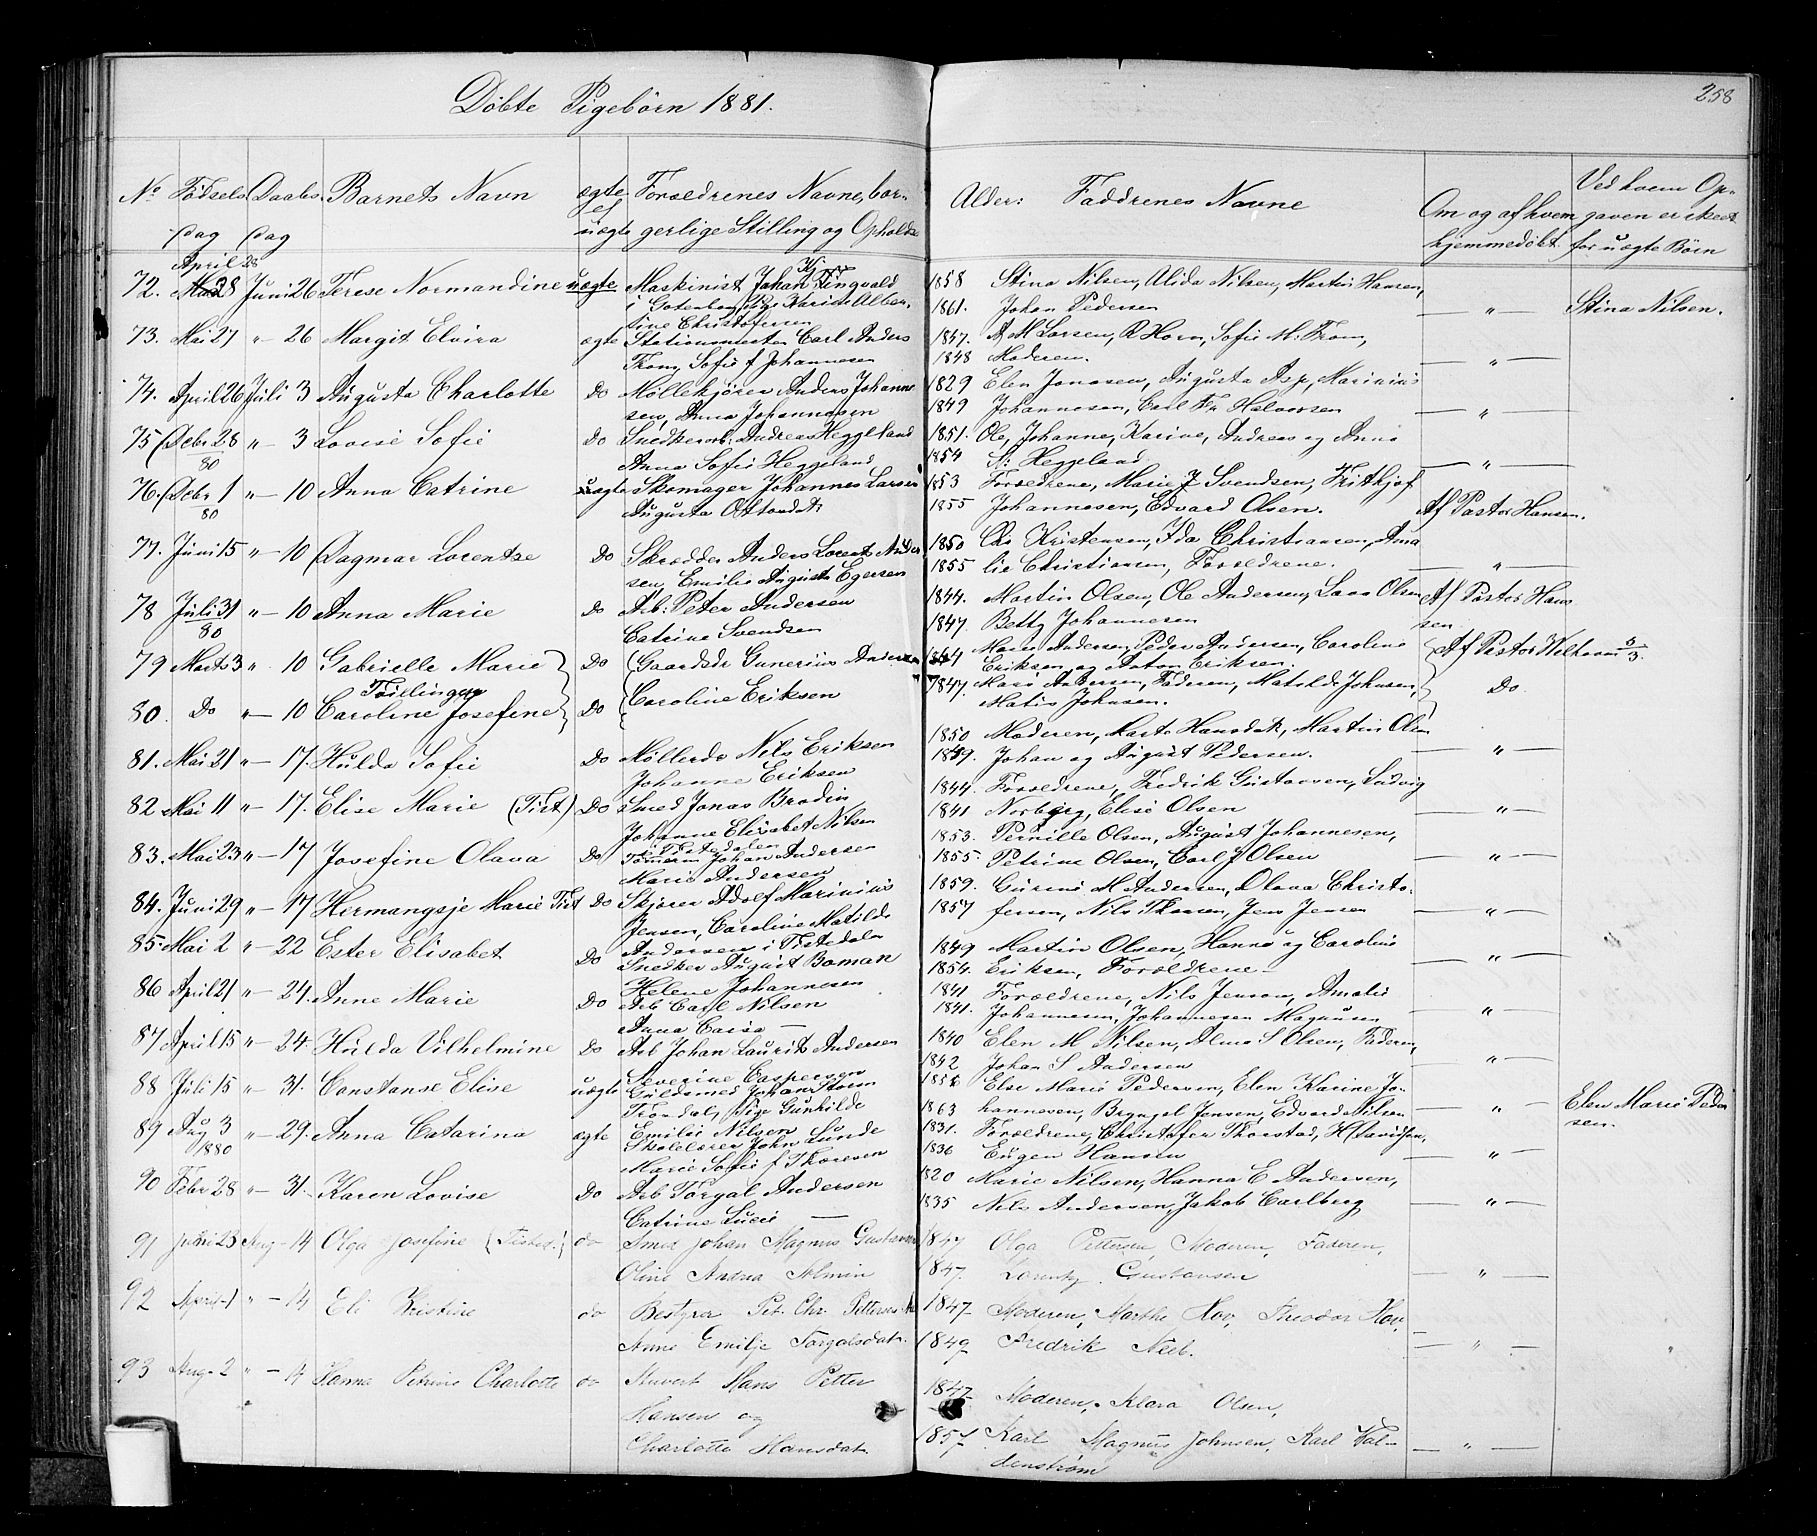 258
Döbte Pigebörn 1881.
No Födsels Dag Daabs Dag Barnets Navn ægte ej uægte Forældrenes Navne, borgerlige Stilling og Opholds Alder: Faddrenes Navne Om og af hvem hjemmedöbt Ved hvem Opgaven er skeet for uægte Börn
72. April 28 Juni 26 Terese Normandine uægte Maskinist Johan Tingvald 1858 Stina Nilsen, Alida Nilsen, Martin Hansen,
i Gotenborg, Pige Karine Alber- 1861. Johan Pedersen — " — Stina Nilsen.
tine Christofersen
73. Mai 27 " 26 Margit Elvira ægte Stationsmester Carl Anders 1847. A M Larsen, R Horn, Sofie M. Trom,
Trom, Sofie f Johannesen 1848 Moderen. — " —
74. April 26 Juli 3 Augusta Charlotte Do Möllekjörer Anders Johanne 1829 Elen Jonasen, Augusta Asp, Marinius
sen, Anna Johannesen 1849 Johannesen, Carl Fr Halvorsen — " —
75 Debr 28 " 3 Lovise Sofie Do Snedkerarb: Andreas Heggeland 1851. Ole, Johanne, Karine, Andreas og Anna
80 Anna Sofie Heggeland 1854 S: Heggeland — " —
76. Debr 1 " 10 Anna Catrine uægte Skomager Johannes Larsen 1853 Forældrene, Marie J Svendsen, Fritkjof
80 Augusta Ottosdat: 1855 Johannesen, Edvard Olsen. Af Pastor Hansen.
77. Juni 15 " 10 Dagmar Lorentse Do Skrædder Anders Lorents Ander 1850 Chr Kristensen, Ida Christiansen, Ama
sen, Emilie Augusta Egersen 1855 lie Christiansen, Forældrene. — " —
78 Juli 31 " 10 Anna Marie Do Arb: Peter Andersen 1844. Martin Olsen, Ole Andersen, Lars Olsen Af Pastor Han
80 Catrine Svendsen 1847. Betty Johannesen sen.
79 Marts 3 " 10 Gabrielle Marie Do Gaardsdr Gunerius Andersen 1844 Maren Andersen, Peder Andersen, Caroline Af Pastor Welhavn 5/3.
Tvillinger Eriksen og Anton Eriksen.
80. Do " 10 Caroline Josefine Do Caroline Eriksen 1847. Marie Andersen, Faderen, Matilde Johnsen, Do.
Matis Johnsen.
81. Mai 21 " 17. Hulda Sofie Do Möllerdr Nils Eriksen 1850 Moderen, Marte Hansdat, Martin Olsen
Johanne Eriksen 1849. Johan og August Pedersen. — " —
82 Mai 11 " 17. Elise Marie (Tist) Do Smed Jonas Brodin 1844. Forældrene, Fredrik Gustavsen, Ludvig
Johanne Elisabet Nilsen 1841 Norberg, Elise Olsen — " —
i Tistedalen
83. Mai 23 " 17 Josefine Olava Do Tömmerm Johan Andersen 1853. Pernille Olsen, August Johannesen,
Marie Andersen 1855. Petrine Olsen, Carl J Olsen — " —
84. Juni 29 " 17 Hermangsje Marie Tist Do Skjörer Adolf Marinius 1859. Gurine M Andersen, Olava Christo-
Jensen, Caroline Matilde 1857 fersen, Nils Thorsen, Jens Jensen — " —
Andersen i Tistedalen
85. Mai 2 " 22 Ester Elisabet Do Snedker August Boman 1849 Martin Olsen, Hanna og Caroline
Helene Johannesen 1854. Eriksen, Forældrene — " —
86 April 21 " 24. Anne Marie Do Arb Carl Nilsen 1841 Forældrene, Nils Jenson, Amalie
Anna Caisa — 1841. Johannesen, Johannesen Magnusen — " —
87 April 15 " 24. Hulda Vilhelmine Do Arb Johan Laurits Andersen 1840 Elen M Nilsen, Alma S Olsen, Faderen,
Severine Caspersen 1842 Johan S Andersen — " —
88 Juli 15 " 31. Constanse Elise uægte Guldsmed Johan Storm Else Marie Pedersen, Elen Karine Jo-
Trondal, Pige Gunhilde 1863 hannesen, Bryngel Jensen, Edvard Nilsen — " — Elen Marie Peder
Emilie Nilsen sen.
89 Aug 3 " 29. Anna Catarina ægte Skolelærer John Lunde 1831. Forældrene, Christofer Thorstad, H Davidsen,
1880 Marie Sofie f Thoresen 1836 Eugen Hansen — " —
90 Febr 28 " 31. Karen Lovise Do Arb Torgal Andersen 1820 Marie Nilsen, Hanna E Andersen,
Catrine Lucie — 1835 Nils Andersen, Jakob Carlberg — " —
91 Juni 23 Aug 14 Olga Josefine (Tisted.) do Smed Johan Magnus Gustavsen 1847 Olga Pettersen, Moderen, Faderen,
Oline Andrea Almin 1847. Lorentz Gustavsen — " —
92 April 1 " 14 Eli Kristine do Bestyrer Pet. Chr. Pettersen 1847 Moderen, Marthe Hov, Theodor Hov,
Anne Emilje Torgalsdat. 1849 Fredrik Neeb. — " — "
93 Aug. 2 " 14 Hanna Petrine Charlotte do Stuvert Hans Petter 1847 Moderen, Klara Olsen,
Hansen og 1857 Karl Magnus Johnsen, Karl Fal-
Charlotte Hansdat. denström — " —